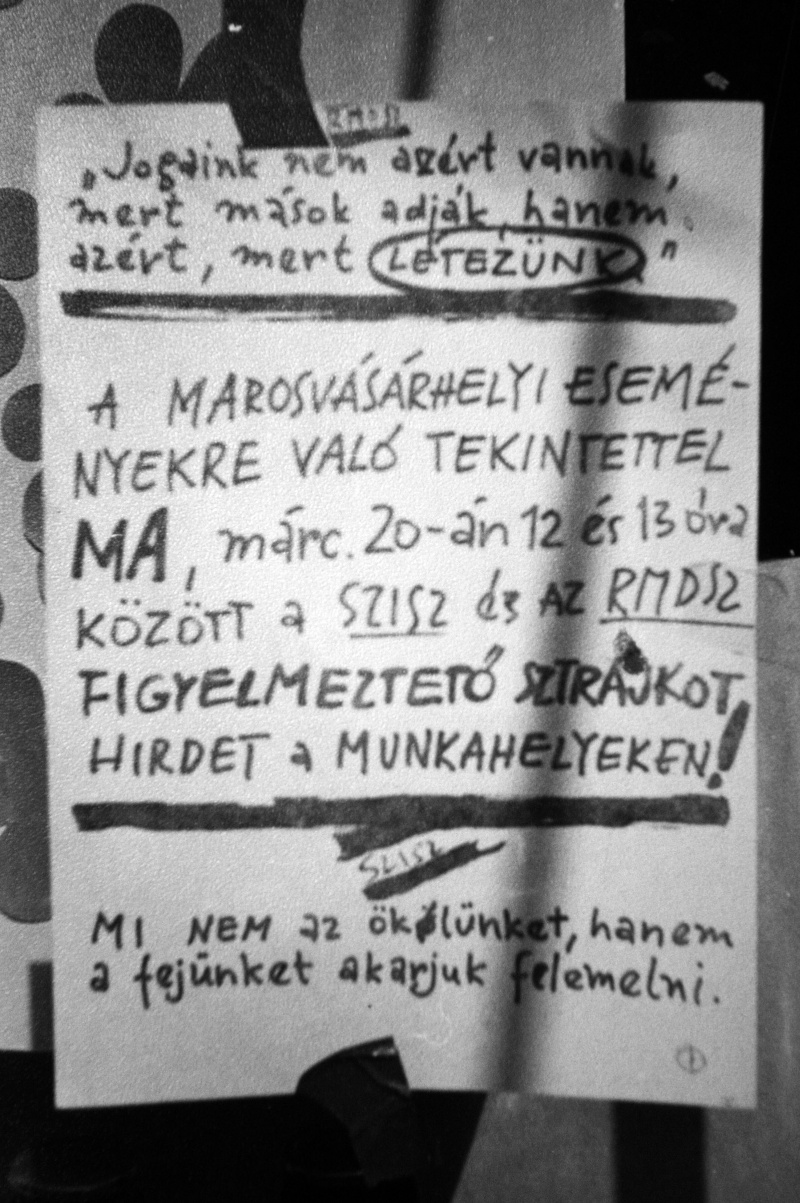 RMDSZ
„Jogaink nem azért vannak,
mert mások adják, hanem
azért, mert LÉTEZÜNK"
A MAROSVÁSÁRHELYI ESEMÉ-
NYEKRE VALÓ TEKINTETTEL
MA, márc. 20-án 12 és 13 óra
KÖZÖTT a SZISZ és AZ RMDSZ
FIGYELMEZTETŐ SZTRÁJKOT
HIRDET a MUNKAHELYEKEN!
SZISZ
MI NEM az öklünket, hanem
a fejünket akarjuk felemelni.